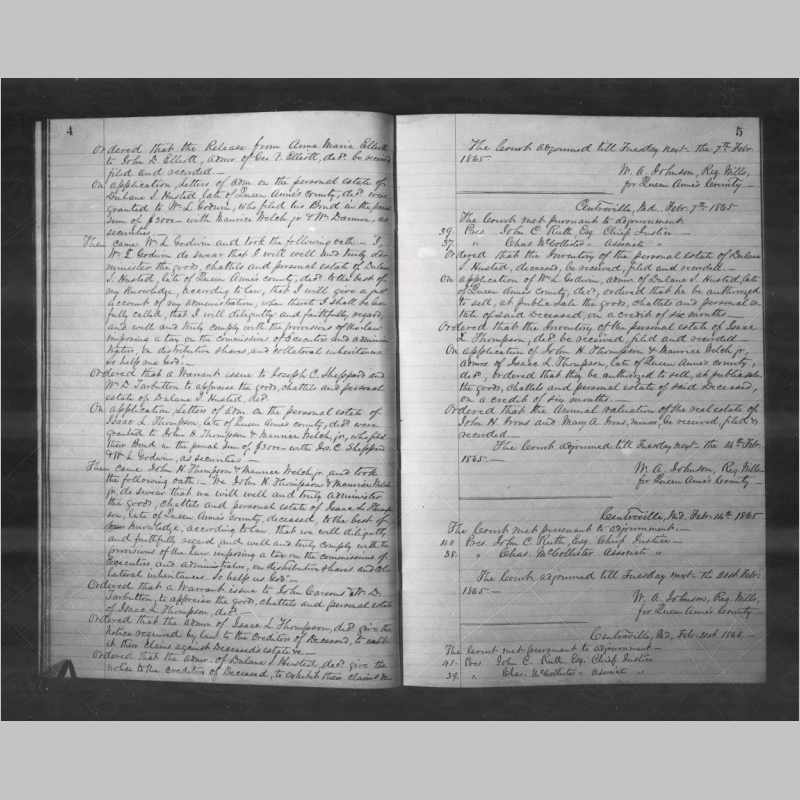 4
Ordered that the Release from Anna Maria Elliott
to John D. Elliott, admr. of Geo. T. Elliott, decd. be received
filed and recorded.—
On application, Letters of Adm. on the personal estate of
Dulane J. Husted, late of Queen Anne's County, decd. were
granted to Wm L. Godwin, who filed his Bond in the penal
sum of $ with Maurice Welch, jr. & Wm as
securities.—
Then came Wm L. Godwin and took the following oath:— "I,
Wm L. Godwin do swear that I will well and truly ad-
minister the goods, chattels and personal estate of Dulane
J. Husted, late of Queen Anne's County, decd. to the best of
my knowledge, according to law, that I will give a just
account of my administration, when thereto I shall be law-
fully called, that I will diligently and faithfully regard,
and well and truly comply with the provisions of the law
imposing a tax on the commissions of Executors and adminis-
trators, on distributive shares, and collateral inheritances
so help me God."
Ordered that a Warrant issue to Joseph C. Sheppard and
Wm D. Tarbutton to appraise the goods, chattels and personal
estate of Dulane J. Husted, decd.
On application, Letters of Adm. on the personal estate of
Isaac L. Thompson, late of Queen Anne's County, decd. were
granted to John H. Thompson & Maurice Welch, jr., who filed
their Bond in the penal sum of $ with Jos. C. Sheppard
& Wm L. Godwin, as securities.—
Then came John H. Thompson & Maurice Welch, jr. and took
the following oath:— "We John H. Thompson & Maurice Welch
jr. do swear that we will well and truly administer
the goods, chattels and personal estate of Isaac L. Thomp-
son, late of Queen Anne's County, deceased, to the best of
our knowledge, according to law, that we will diligently
and faithfully regard, and well and truly comply with the
provisions of the law imposing a tax on the commissions of
Executors and administrators, on distributive shares and Col-
lateral inheritances. So help us God."
Ordered that a Warrant issue to John Carsons & Wm D.
Tarbutton, to appraise the goods, chattels and personal estate
of Isaac L. Thompson, decd.—
Ordered that the admrs. of Isaac L. Thompson, decd. give the
notice required by law to the Creditors of Deceased, to exhib-
it their claims against Deceased's estate &c.—
Ordered that the admr. of Dulane J. Husted, decd. give the
notice to the creditors of Deceased, to exhibit their claims &c
5
The Court adjourned till Tuesday next— the 7th Feb.
1865.
W. A. Johnson, Reg. Wills,
for Queen Anne's County—
Centreville, Md. Feb. 7th 1865
The Court met pursuant to adjournment
39. Pres. John C. Ruth Esq. Chief Justice—
37. " Chas. McCollister— Associate "
Ordered that the Inventory of the personal estate of Dulane
J. Husted, deceased, be received, filed and recorded.—
On application of Wm L. Godwin, admr. of Dulane J. Husted, late
of Queen Anne's County, decd., ordered that he be authorized
to sell, at public sale the goods, chattels and personal es-
tate of said Deceased, on a credit of six months.—
Ordered that the Inventory of the personal estate of Isaac
L. Thompson, decd. be received, filed and recorded.—
On application of John H. Thompson & Maurice Welch, jr.,
admrs. of Isaac L. Thompson, late of Queen Anne's County,
decd., ordered that they be authorized to sell, at public sale
the goods, chattels and personal estate of said Deceased,
on a credit of six months.—
Ordered that the Annual valuation of the real estate of
John H. Irons and Mary A. Irons, minors, be received, filed &
recorded.—
The Court adjourned till Tuesday next— the 14th Feb.
1865.—
W. A. Johnson, Reg. Wills
for Queen Anne's County—
Centreville, Md. Feb. 14th 1865
The Court met pursuant to adjournment:—
40 Pres. John C. Ruth, Esq. Chief Justice—
38. " Chas. McCollister Associate "
The Court adjourned till Tuesday next— the 21st Feb.
1865—
W. A. Johnson, Reg. Wills,
for Queen Anne's County—
Centreville, Md. Feb. 21st 1865.—
The Court met pursuant to adjournment—
41. Pres. John C. Ruth Esq. Chief Justice
39. " Chas. McCollister— Associate "